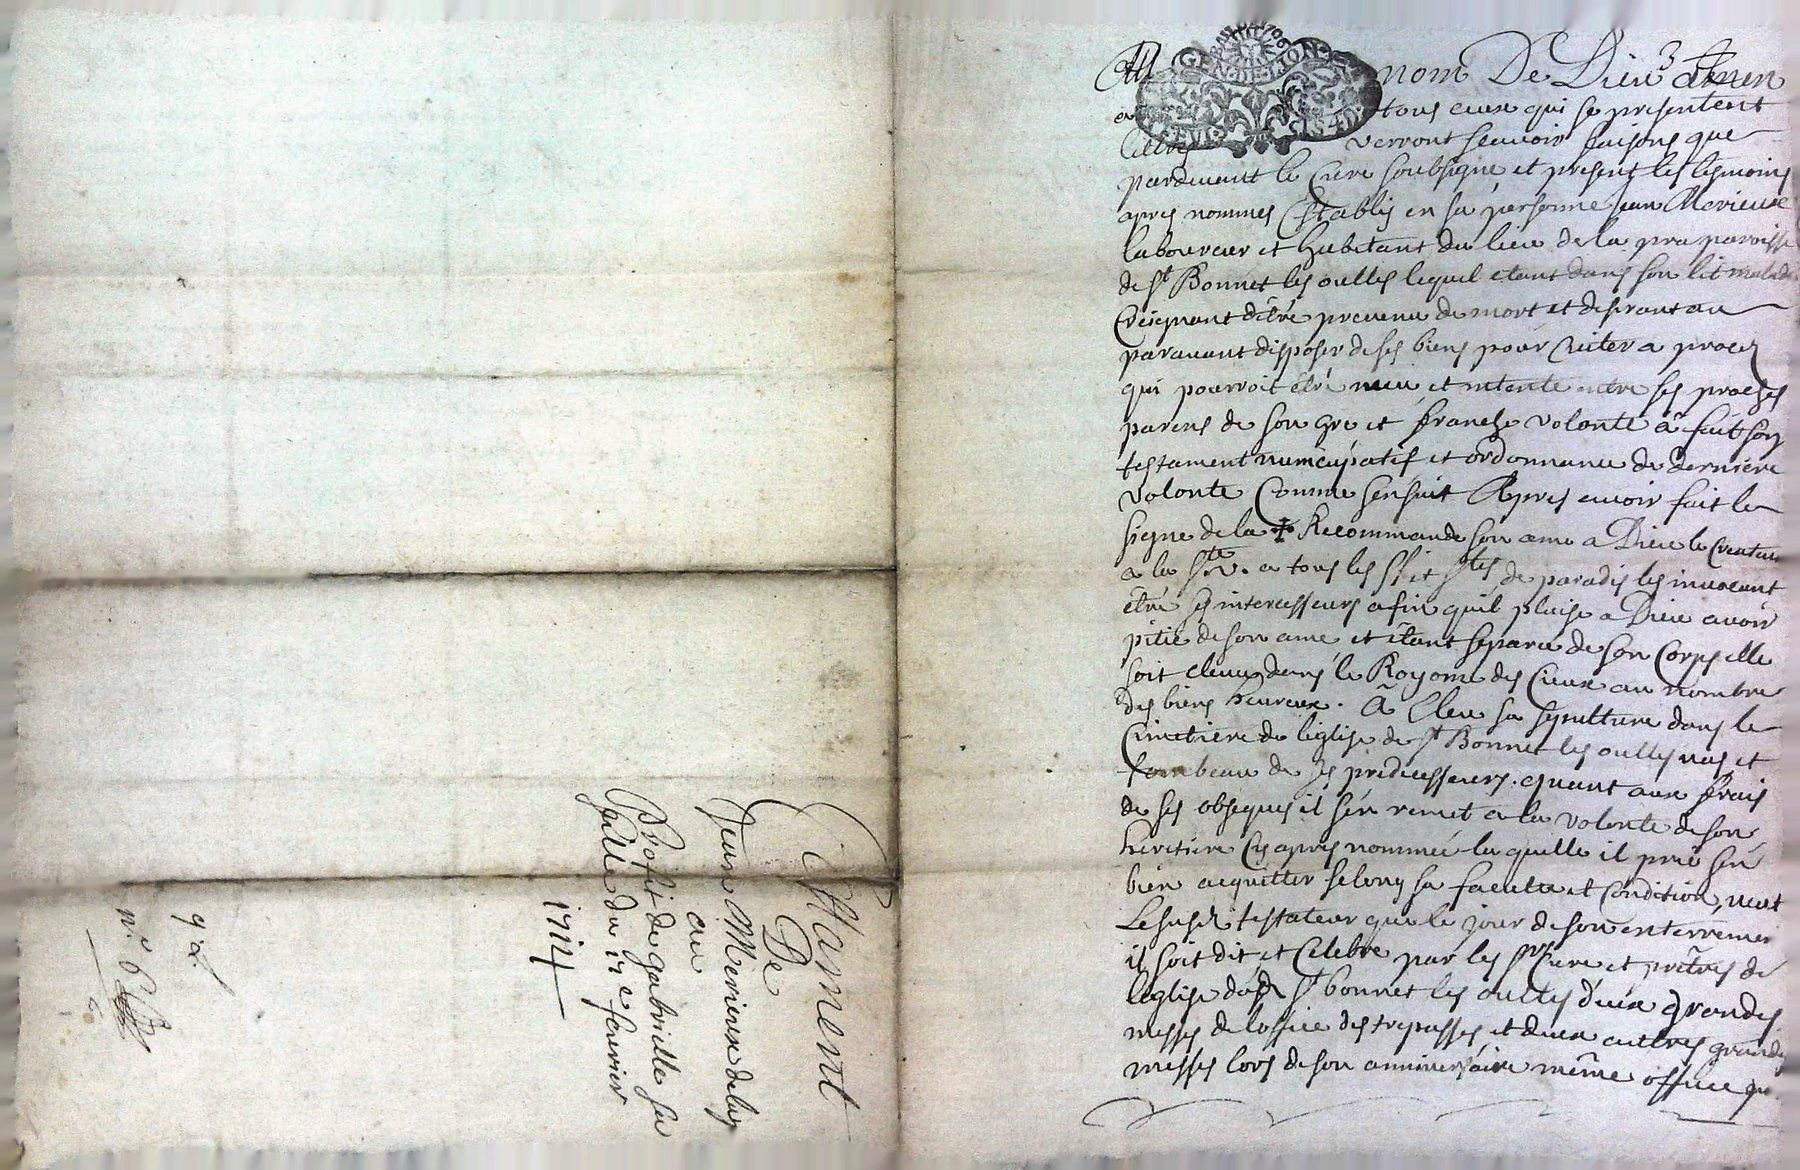 Testament
De
Jean Merieux delay
au
Profit de gabrielle sa
fille du 17e fevrier
1714
92.
n.e 6
Au nom De Dieu Amen
a tous ceux qui se presentent
lettres verront scavoir faisons que
pardevant le Curé soubsigne et present les tesmoins
apres nommes Establis en sa personne Jean Merieux
laboureur et habitant du lieu de la pra paroisse
de st Bonnet les oulles lequel etant dans son lit malade
Creignant d'être prevenu de mort et desirant au
paravant disposer de ses biens pour eviter a proces
qui pourroit être meu et intente entre ses proches
parens de son gre et franche volonte â fait son
testament nuncupatif et ordonnance de derniere
volonte Comme sensuit Apres avoir fait le
signe de la ✝ Recommande son ame a Dieu le Createur
a la Ste. V. a tous les Sts et Stes de paradis les invocant
être ses intercesseurs afin quil plaise a Dieu avoir
pitie de son ame et êtant separée de son Corps elle
soit elevee dans le Royome des Cieux au nombre
des biens heureux. â Eleu sa sepulture dans le
Cimetiere de leglise de st Bonnet les oulles vas et
tombeau de ses predecesseurs. quant aux frais
de ses obseques il sen remet a la volonte de son
heritiere Cy apres nommée la quelle il prie sen
bien acquitter selong sa faculte et Condition, veut
Le susd testateur que le jour de son enterremen
il soit dit et Celebré par les srs Cure et prêtres de
leglise dud st bonnet les oulles deux grandes
messes de loffice des trepasses et deux autres grandes
messes lors de son anniversaire même office que